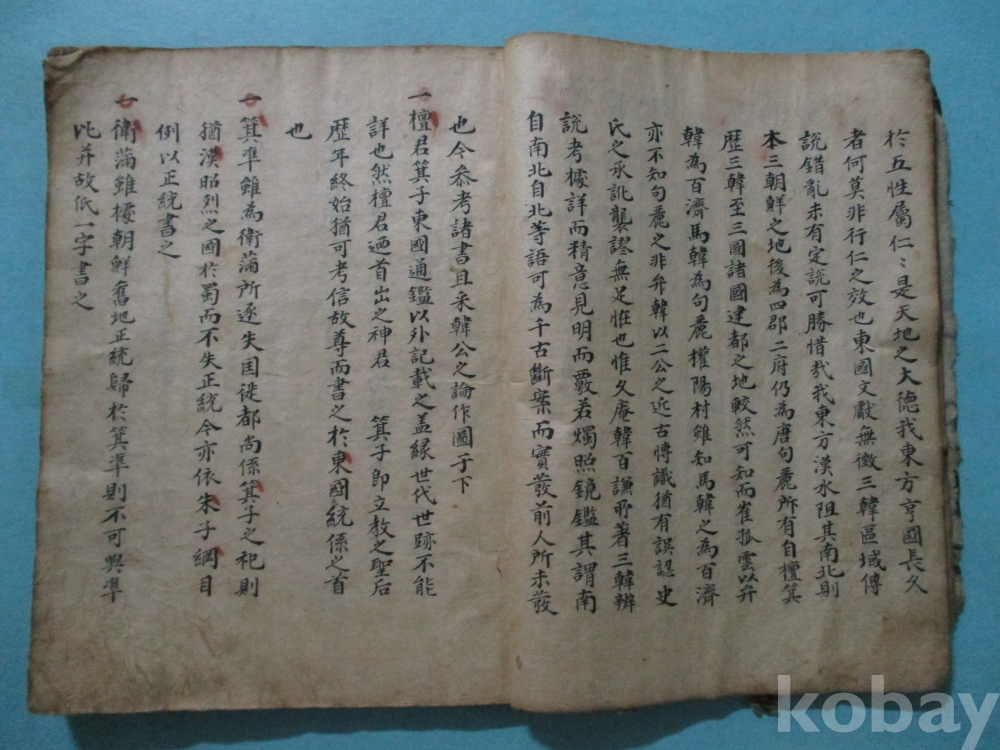 於五性屬仁〻是天地之大德我東方亨國長久
者何莫非行仁之效也東國文獻無徵三韓區域傳
說錯亂未有定說可勝惜㢤我東方漢水阻其南北則
本三朝鮮之地後為四郡二府仍為唐句麗所有自檀箕
歷三韓至三國諸國建都之地較然可知而崔孤雲以弁
韓為百濟馬韓為句麗權陽村雖知馬韓之為百濟
亦不知句麗之非弁韓以二公之近古博識猶有誤認史
氏之承訛襲謬無足恠也惟久庵韓百謙所著三韓辨
說考據詳而精意見明而覈若燭照鏡鑑其謂南
自南北自北等語可為千古斷案而實發前人所未發
也今參考諸書且采韓公之論作圖于下
一檀君箕子東國通鑑以外記載之盖緣世代世跡不能
詳也然檀君廼首出之神君 箕子即立教之聖后
歷年終始猶可考信故尊而書之於東國統係之首
也
一箕準雖為衛滿所逐失国徙都尚係箕子之祀則
猶漢昭烈之國於蜀而不失正統今亦依朱子綱目
例以正統書之
一衛滿雖據朝鮮舊地正統歸於箕準則不可與準
比并故低一字書之
kobay